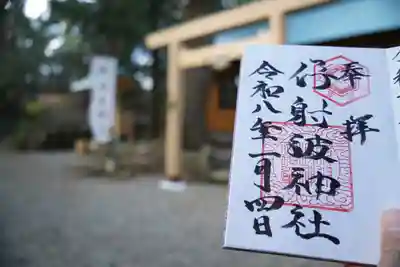 奉拝
伊射波神社
令和八年一月四日